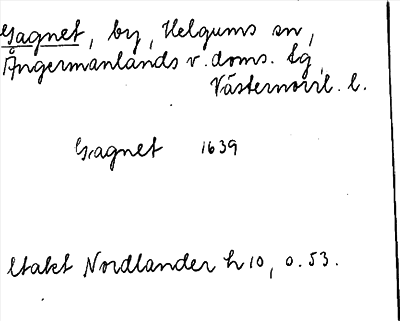 Gagnet, by, Helgums sn,
Ångermanlands v. doms. tg,
Västernorrl. l.
Gagnet 1639
Utakt Nordlander h 10, o. 53.